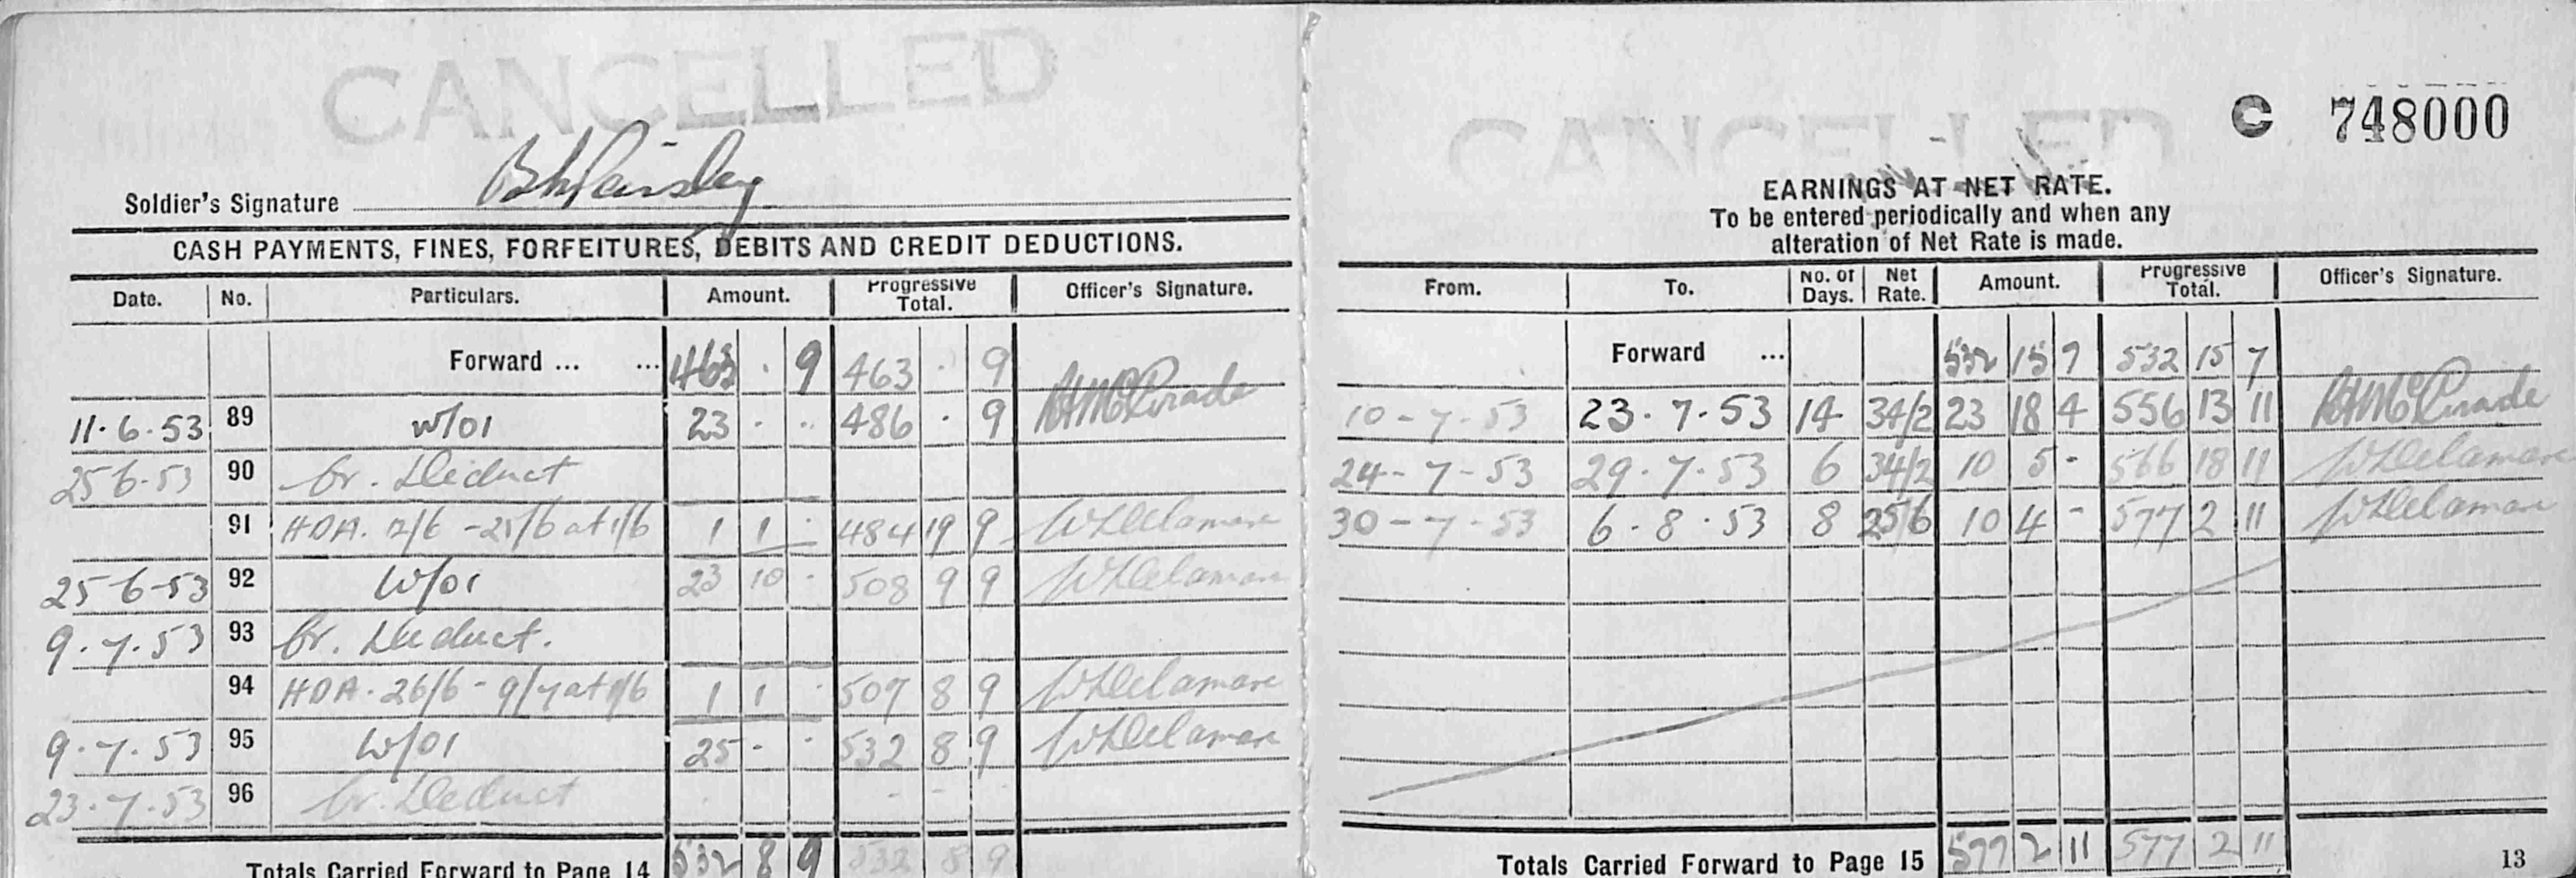 CANCELLED
Soldier's Signature
CASH PAYMENTS, FINES, FORFEITURES, DEBITS AND CREDIT DEDUCTIONS.
Date. No. Particulars. Amount. Progressive Total. Officer's Signature.
Forward ... ... 463 . 9 463 . 9
11.6.53 89 W/01 23 . .. 486 . 9
25 6-53 90 Cr. Deduct
91 HDA. 12/6 - 25/6 at 1/6 1 1 . 484 19 9
25-6-53 92 W/01 23 10 . 508 9 9
9.7.53 93 Cr. Deduct.
94 HDA. 26/6 - 9/7 at 1/6 1 1 . 507 8 9
9.7.53 95 W/01 25 - . 532 8 9
23.7.53 96 Cr. Deduct
Totals Carried Forward to Page 14 532 8 9 532 8 9
CANCELLED
C 748000
EARNINGS AT NET RATE.
To be entered periodically and when any
alteration of Net Rate is made.
From. To. No. of Days. Net Rate. Amount. Progressive Total. Officer's Signature.
Forward ... 532 15 7 532 15 7
10-7-53 23.7.53 14 34/2 23 18 4 556 13 11
24-7-53 29.7.53 6 34/2 10 5 - 566 18 11
30-7-53 6.8.53 8 25/6 10 4 - 577 2 11
Totals Carried Forward to Page 15 577 2 11 577 2 11
13